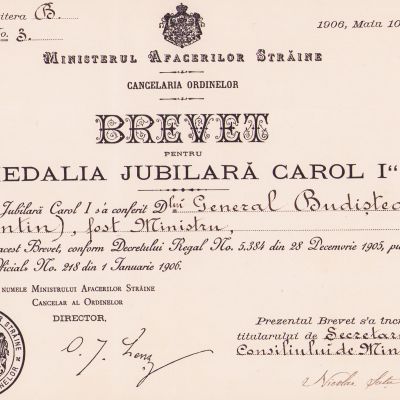 itera B.
No. 3.
1906, Maiu 10
MINISTERUL AFACERILOR STRĂINE
CANCELARIA ORDINELOR
BREVET
PENTRU
EDALIA JUBILARĂ CAROL I“
Jubilară Carol I s'a conferit Dlui General Budișteo
ntin), fost Ministru,
acest Brevet, conform Decretului Regal No. 5,384 din 28 Decemvrie 1905, pu
fficială No. 218 din 1 Ianuarie 1906.
NUMELE MINISTRULUI AFACERILOR STRĂINE
CANCELAR AL ORDINELOR
DIRECTOR,
Prezentul Brevet s'a înc
titularului de Secretar
Consiliului de Min
Nicolae